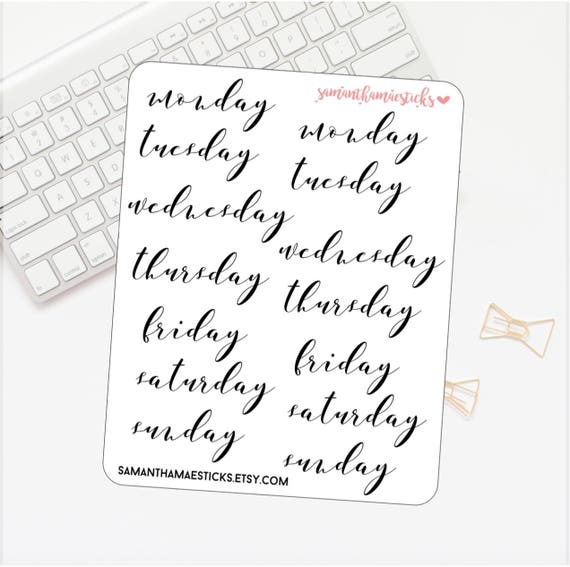 samanthamaesticks
monday
tuesday
wednesday
thursday
friday
saturday
sunday
monday
tuesday
wednesday
thursday
friday
saturday
sunday
SAMANTHAMAESTICKS.ETSY.COM